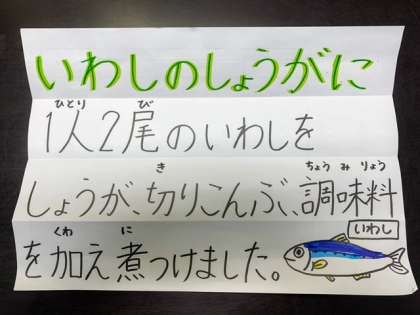 いわしのしょうがに
ひとり び
1人2尾のいわしを
き ちょう み りょう
しょうが、切りこんぶ、調味料
くわ に
を加え煮つけました。
いわし